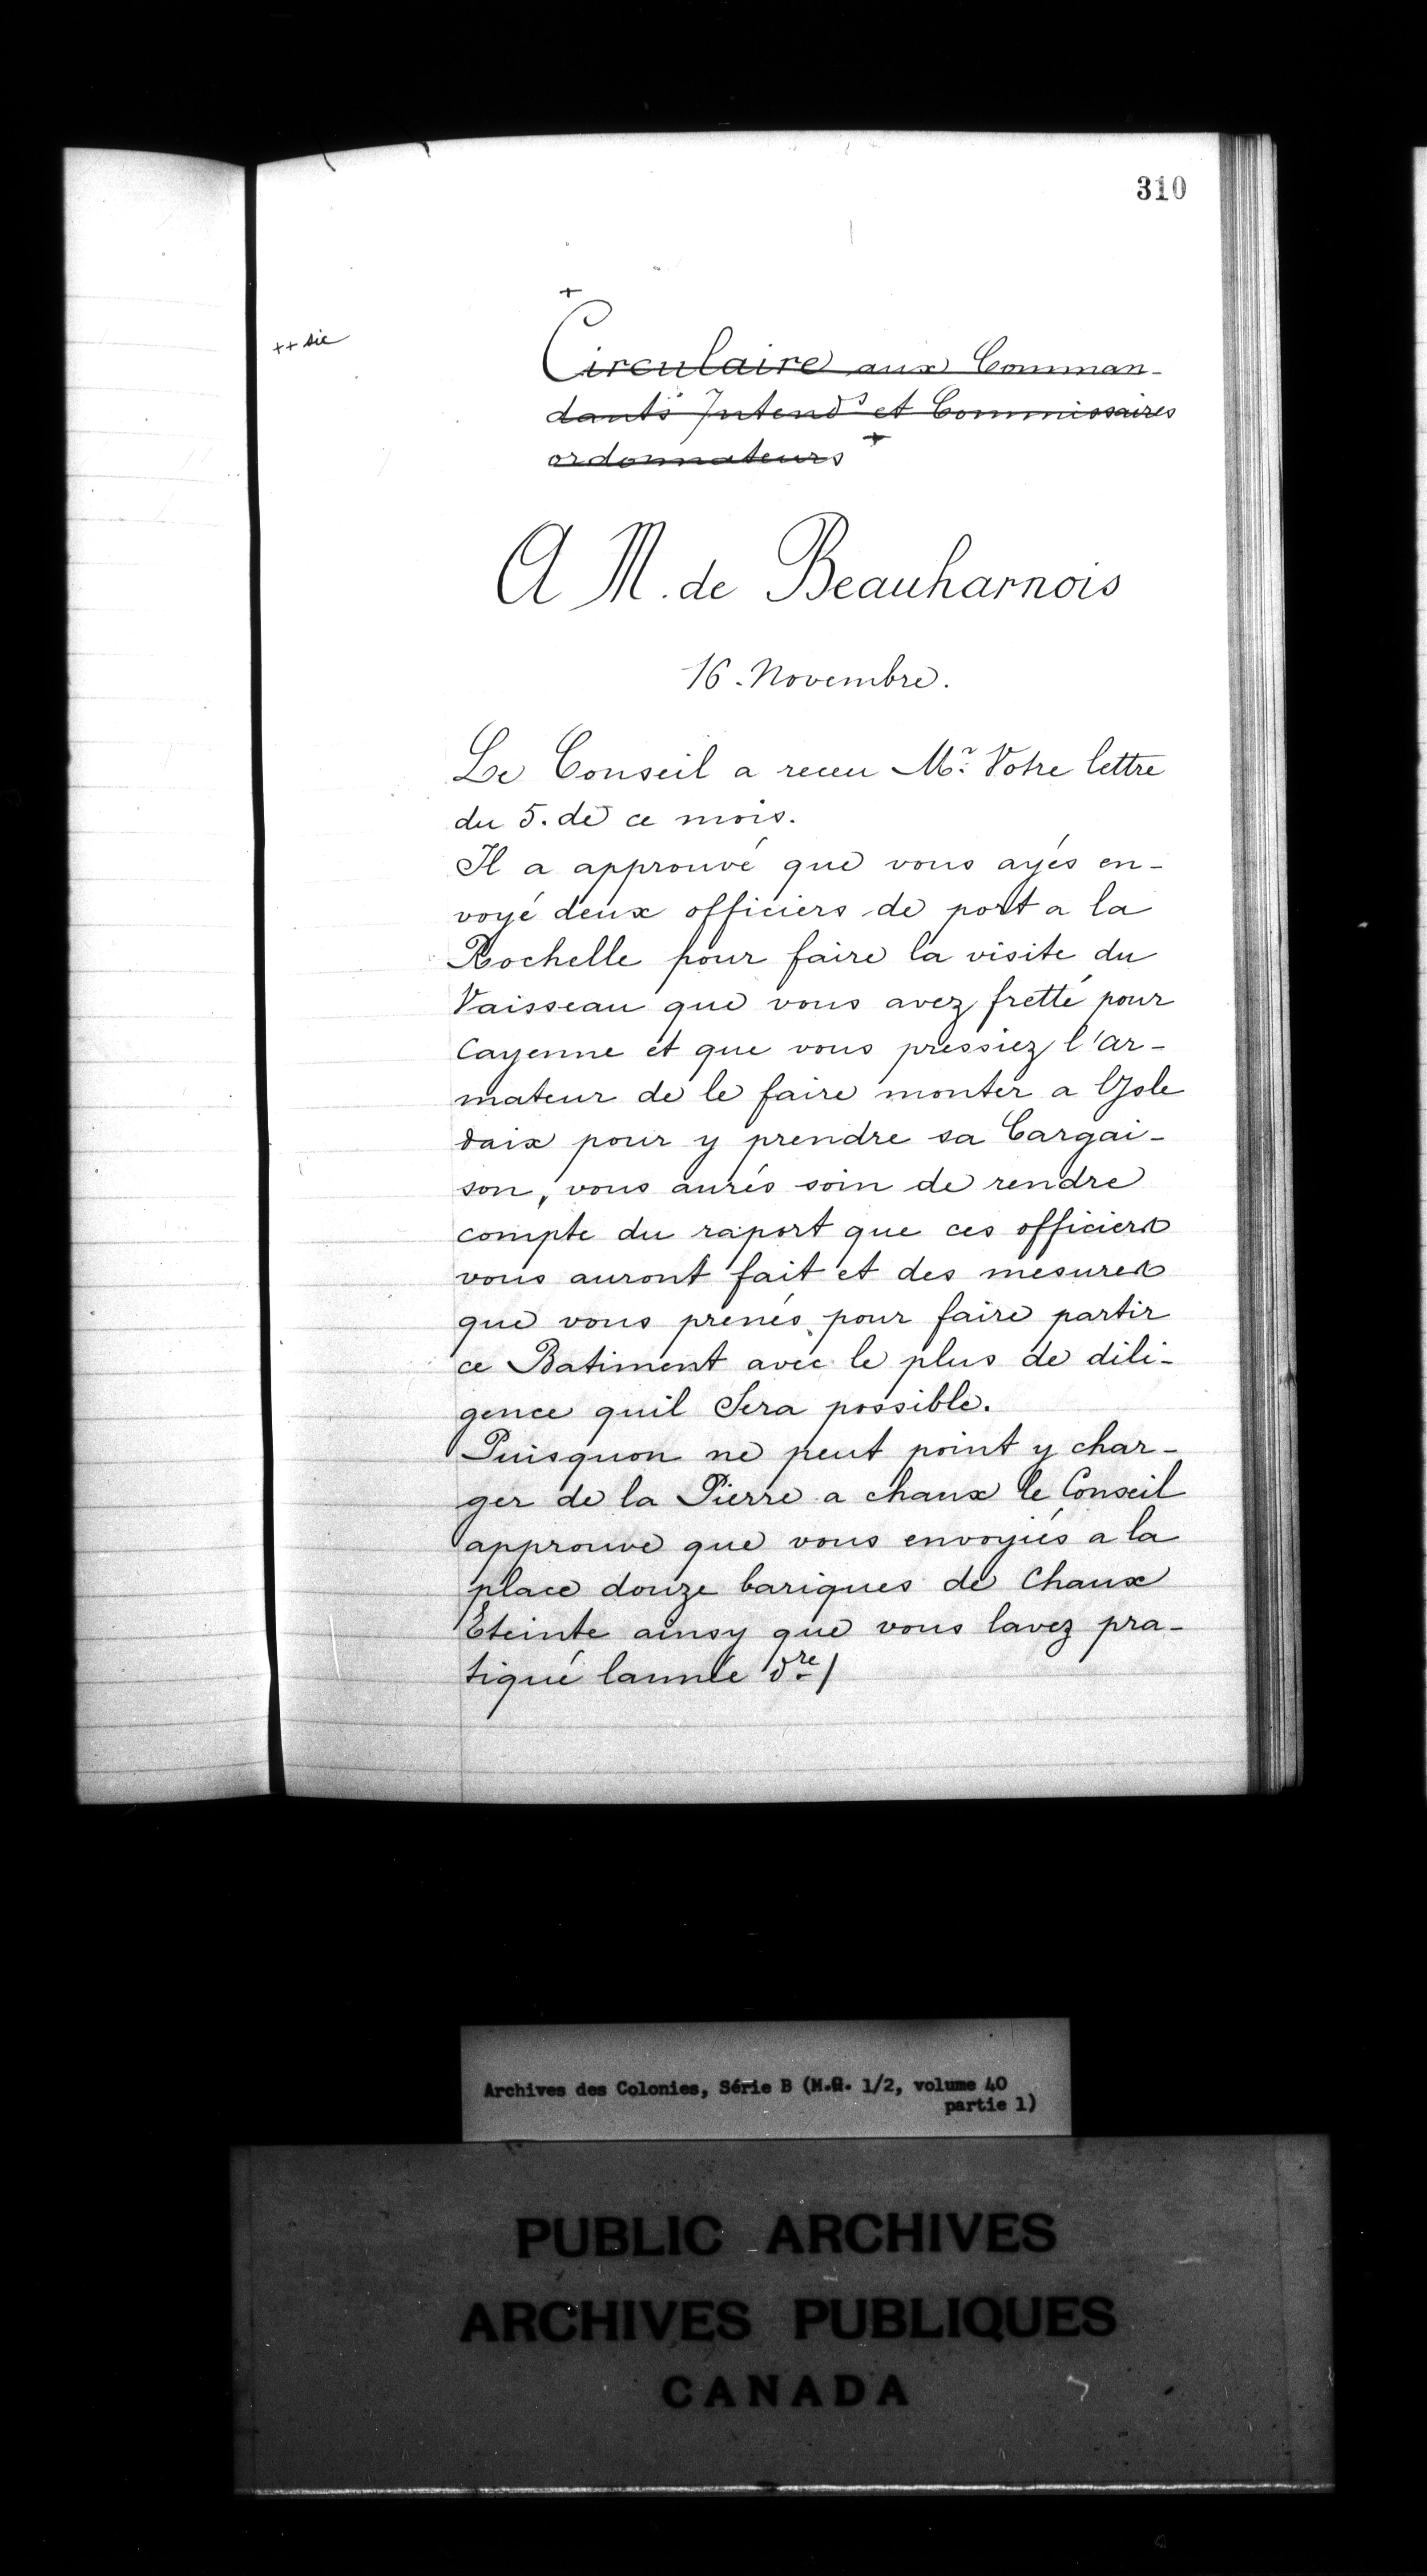 310
++ sic
+
Circulaire aux Comman-
dants Intend.s et Commissaires
ordonnateurs +
A M. de Beauharnois
16. Novembre.
Le Conseil a receu Mr. Votre lettre
du 5. de ce mois.
Il a approuvé que vous ayés en-
voyé deux officiers de port a la
Rochelle pour faire la visite du
Vaisseau que vous avez fretté pour
Cayenne et que vous pressiez l'ar-
mateur de le faire monter a l'Isle
daix pour y prendre sa Cargai-
son, vous aurés soin de rendre
compte du raport que ces officiers
vous auront fait et des mesures
que vous prenés pour faire partir
ce Batiment avec le plus de dili-
gence quil Sera possible.
Puisquon ne peut point y char-
ger de la Pierre a chaux le Conseil
approuve que vous envoyiés a la
place douze bariques de Chaux
Eteinte ainsy que vous lavez pra-
tiqué lannée dre /
Archives des Colonies, Série B (M.G. 1/2, volume 40
partie 1)
PUBLIC ARCHIVES
ARCHIVES PUBLIQUES
CANADA